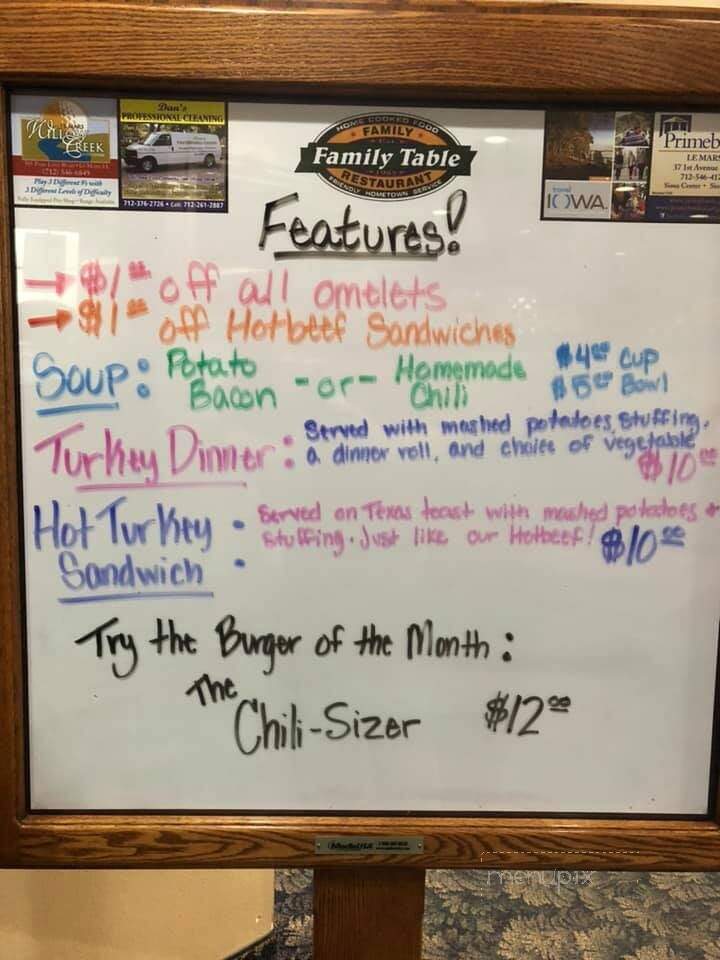 Willow Creek
(712) 546-6849
Play 3 Different 9's with
3 Different Levels of Difficulty
Dan's
PROFESSIONAL CLEANING
712-376-2726 • Cell: 712-261-2887
HOME COOKED FOOD
FAMILY
Family Table
RESTAURANT
FRIENDLY HOMETOWN SERVICE
travel
IOWA.
Primeb
LE MARS
37 1st Avenue
712-546-41
Features!
→ $1.00 off all omelets
→ $1.00 off Hotbeef Sandwiches
Soup: Potato Bacon -or- Homemade Chili
$4.00 Cup
$5.00 Bowl
Turkey Dinner: Served with mashed potatoes, stuffing,
a dinner roll, and choice of vegetable
$10.00
Hot Turkey Sandwich: Served on Texas toast with mashed potatoes +
stuffing. Just like our Hotbeef! $10.00
Try the Burger of the Month:
The Chili-Sizer $12.00
menupix